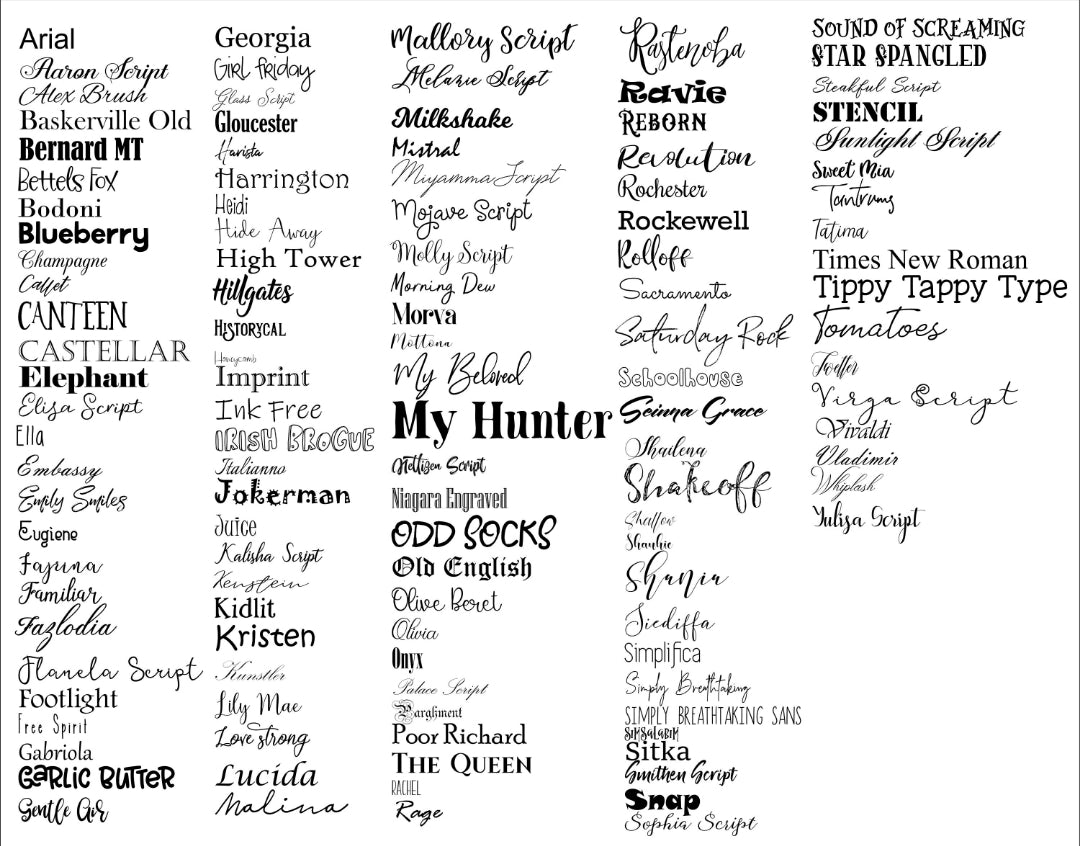 Arial
Aaron Script
Alex Brush
Baskerville Old
Bernard MT
Bettels Fox
Bodoni
Blueberry
Champagne
Callfet
CANTEEN
CASTELLAR
Elephant
Elisa Script
Ella
Embassy
Emily Smiles
Eugiene
Fajuna
Familiar
Fazlodia
Flanela Script
Footlight
Free Spirit
Gabriola
GaRLiC BUTTER
Gentle Girl
Georgia
GIRL FRIDAY
Glass Script
Gloucester
Harista
Harrington
Heidi
Hide Away
High Tower
Hillgates
HISTORYCAL
Honeycomb
Imprint
Ink Free
IRISH BROGUE
Italianno
Jokerman
Juice
Kalisha Script
Kenstein
Kidlit
Kristen
Kunstler
Lily Mae
Love strong
Lucida
Malina
Mallory Script
Melanie Script
Milkshake
Mistral
Miyamma Script
Mojave Script
Molly Script
Morning Dew
Morva
Mottona
My Beloved
My Hunter
Nettizen Script
Niagara Engraved
ODD SOCKS
Old English
Olive Beret
Olivia
Onyx
Palace Script
Parghment
Poor Richard
THE QUEEN
RACHEL
Rage
Rastenoba
Ravie
REBORN
Revolution
Rochester
Rockewell
Rolloff
Sacramento
Saturday Rock
Schoolhouse
Seinna Grace
Shadena
Shakeoff
Shallow
Shania
Siediffa
Simplifica
Simply Breathtaking
SIMPLY BREATHTAKING SANS
SIMSALABIM
Sitka
Smithen Script
Snap
Sophia Script
SOUND OF SCREAMING
STAR SPANGLED
Steakful Script
STENCIL
Sunlight Script
Sweet Mia
Tantrums
Tatima
Times New Roman
Tippy Tappy Type
Tomatoes
Virga Script
Vivaldi
Vladimir
Whiplash
Yulisa Script